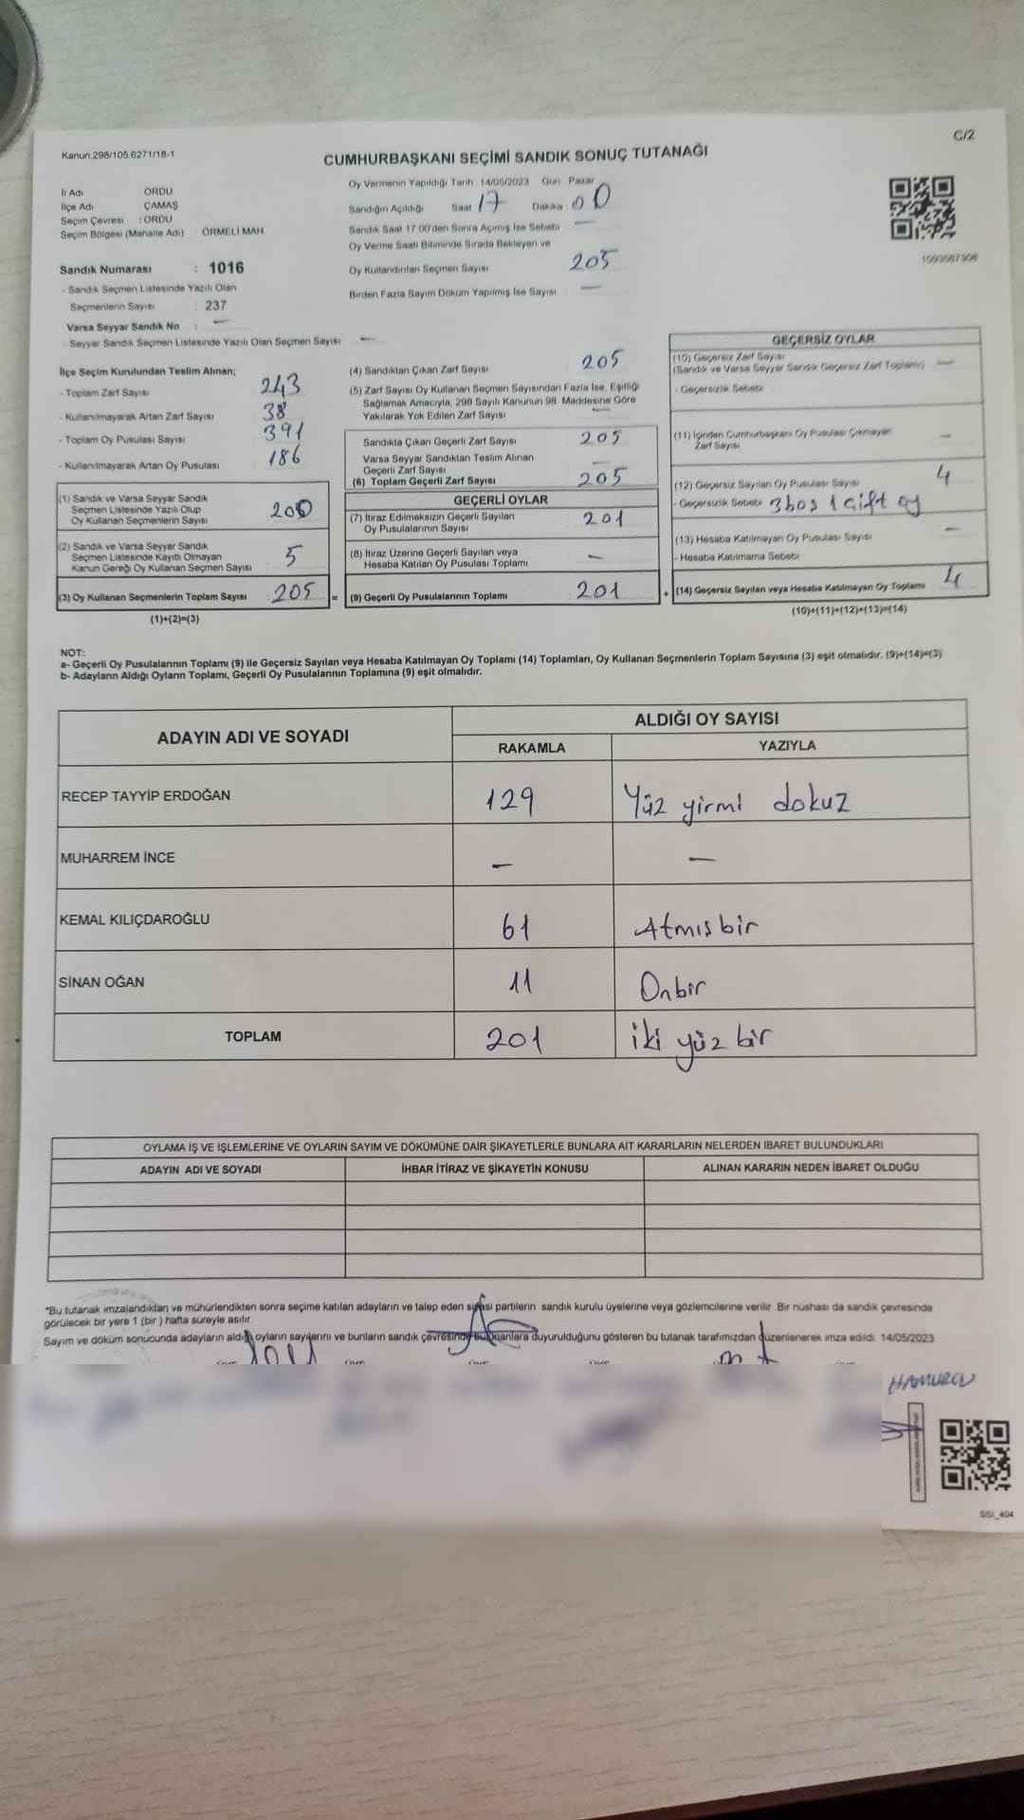 C/2
Kanun.298/105.6271/18-1
CUMHURBAŞKANI SEÇİMİ SANDIK SONUÇ TUTANAĞI
İl Adı ORDU
İlçe Adı ÇAMAŞ
Seçim Çevresi : ORDU
Seçim Bölgesi (Mahalle Adı) ÖRMELİ MAH
Sandık Numarası : 1016
- Sandık Seçmen Listesinde Yazılı Olan
Seçmenlerin Sayısı : 237
Varsa Seyyar Sandık No : —
- Seyyar Sandık Seçmen Listesinde Yazılı Olan Seçmen Sayısı —
Oy Vermenin Yapıldığı Tarih 14/05/2023 Gün Pazar
Sandığın Açıldığı Saat 17 Dakika 00
Sandık Saat 17.00'den Sonra Açılmış İse Sebebi —
Oy Verme Saati Bitiminde Sırada Bekleyen ve
Oy Kullandırılan Seçmen Sayısı 205
Birden Fazla Sayım Döküm Yapılmış İse Sayısı —
İlçe Seçim Kurulundan Teslim Alınan;
- Toplam Zarf Sayısı 243
- Kullanılmayarak Artan Zarf Sayısı 38
- Toplam Oy Pusulası Sayısı 391
- Kullanılmayarak Artan Oy Pusulası 186
(1) Sandık ve Varsa Seyyar Sandık
Seçmen Listesinde Yazılı Olup
Oy Kullanan Seçmenlerin Sayısı 200
(2) Sandık ve Varsa Seyyar Sandık
Seçmen Listesinde Kayıtlı Olmayan
Kanun Gereği Oy Kullanan Seçmen Sayısı 5
(3) Oy Kullanan Seçmenlerin Toplam Sayısı 205 =
(1)+(2)=(3)
(4) Sandıktan Çıkan Zarf Sayısı 205
(5) Zarf Sayısı Oy Kullanan Seçmen Sayısından Fazla İse, Eşitliği
Sağlamak Amacıyla, 298 Sayılı Kanunun 98. Maddesine Göre
Yakılarak Yok Edilen Zarf Sayısı —
Sandıkta Çıkan Geçerli Zarf Sayısı 205
Varsa Seyyar Sandıktan Teslim Alınan
Geçerli Zarf Sayısı —
(6) Toplam Geçerli Zarf Sayısı 205
GEÇERLİ OYLAR
(7) İtiraz Edilmeksizin Geçerli Sayılan
Oy Pusulalarının Sayısı 201
(8) İtiraz Üzerine Geçerli Sayılan veya
Hesaba Katılan Oy Pusulası Toplamı —
(9) Geçerli Oy Pusulalarının Toplamı 201 +
GEÇERSİZ OYLAR
(10) Geçersiz Zarf Sayısı
(Sandık ve Varsa Seyyar Sandık Geçersiz Zarf Toplamı) —
- Geçersizlik Sebebi
(11) İçinden Cumhurbaşkanı Oy Pusulası Çıkmayan
Zarf Sayısı —
(12) Geçersiz Sayılan Oy Pusulası Sayısı 4
- Geçersizlik Sebebi 3 bos 1 çift oy
(13) Hesaba Katılmayan Oy Pusulası Sayısı —
- Hesaba Katılmama Sebebi
(14) Geçersiz Sayılan veya Hesaba Katılmayan Oy Toplamı 4
(10)+(11)+(12)+(13)=(14)
NOT:
a- Geçerli Oy Pusulalarının Toplamı (9) ile Geçersiz Sayılan veya Hesaba Katılmayan Oy Toplamı (14) Toplamları, Oy Kullanan Seçmenlerin Toplam Sayısına (3) eşit olmalıdır. (9)+(14)=(3)
b- Adayların Aldığı Oyların Toplamı, Geçerli Oy Pusulalarının Toplamına (9) eşit olmalıdır.
ADAYIN ADI VE SOYADI ALDIĞI OY SAYISI
RAKAMLA YAZIYLA
RECEP TAYYİP ERDOĞAN 129 Yüz yirmi dokuz
MUHARREM İNCE — —
KEMAL KILIÇDAROĞLU 61 Atmış bir
SİNAN OĞAN 11 Onbir
TOPLAM 201 iki yüz bir
OYLAMA İŞ VE İŞLEMLERİNE VE OYLARIN SAYIM VE DÖKÜMÜNE DAİR ŞİKAYETLERLE BUNLARA AİT KARARLARIN NELERDEN İBARET BULUNDUKLARI
ADAYIN ADI VE SOYADI İHBAR İTİRAZ VE ŞİKAYETİN KONUSU ALINAN KARARIN NEDEN İBARET OLDUĞU
*Bu tutanak imzalandıktan ve mühürlendikten sonra seçime katılan adayların ve talep eden siyasi partilerin sandık kurulu üyelerine veya gözlemcilerine verilir. Bir nüshası da sandık çevresinde
görülecek bir yere 1 (bir) hafta süreyle asılır.
Sayım ve döküm sonucunda adayların aldığı oyların sayılarını ve bunların sandık çevresinde bulunanlara duyurulduğunu gösteren bu tutanak tarafımızdan düzenlenerek imza edildi. 14/05/2023